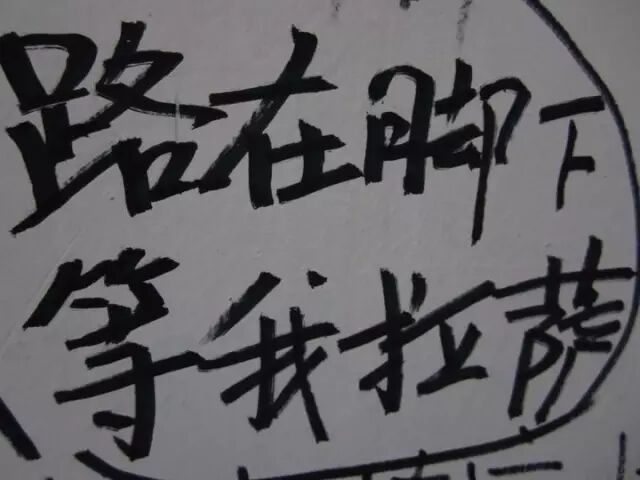 路在脚下
等我拉萨